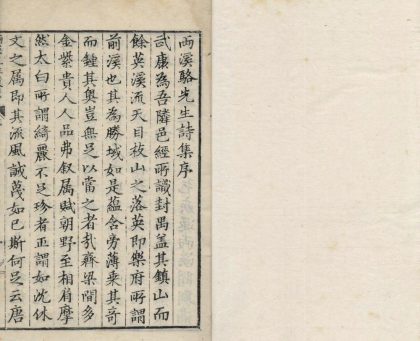 両溪駱先生詩集序
武康為吾隣邑經所識封禺蓋其鎮山而
餘英溪流天目枝山之落英即樂府所謂
前溪也其為勝域如是蘊含旁薄乗其奇
而鍾其奥豈無足以當之者㢤齊梁間多
金紫貴人人品弗叙属賦朝野至相肩摩
然太白所謂綺麗不足珍者正謂如沈休
文之属即其流風誠蔑如已斯何足云唐